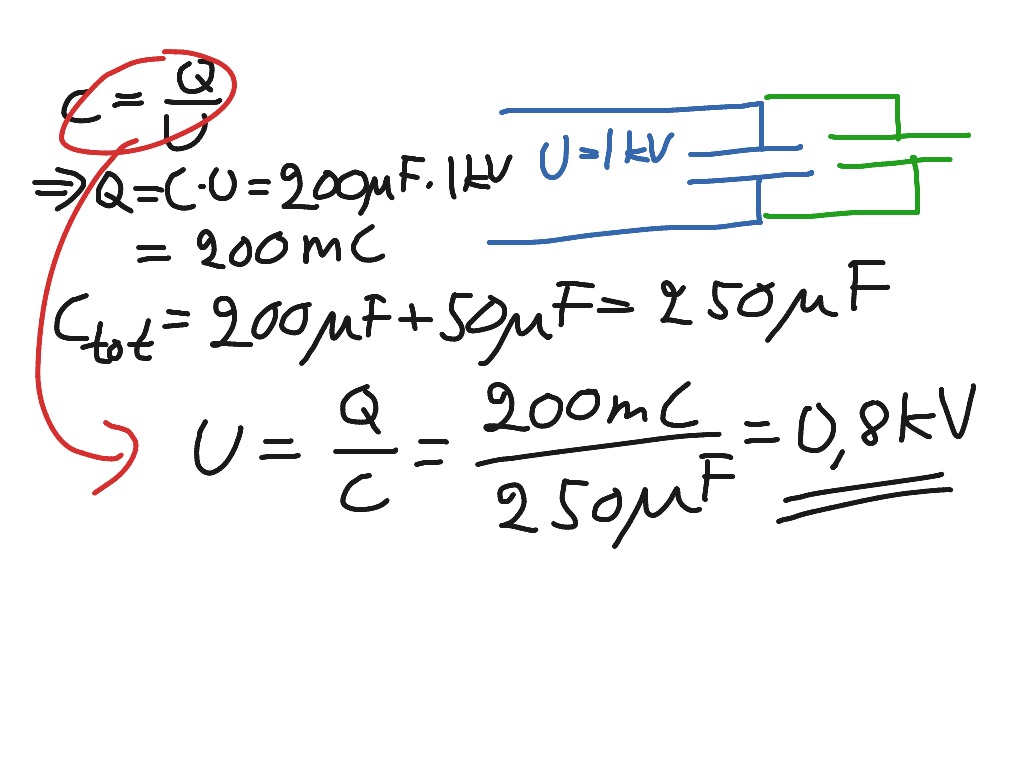 C = Q/U
U=1kV
⇒ Q=C·U=200μF·1kV
= 200mC
C_tot = 200μF+50μF=250μF
U = Q/C = 200mC/250μF = 0,8kV